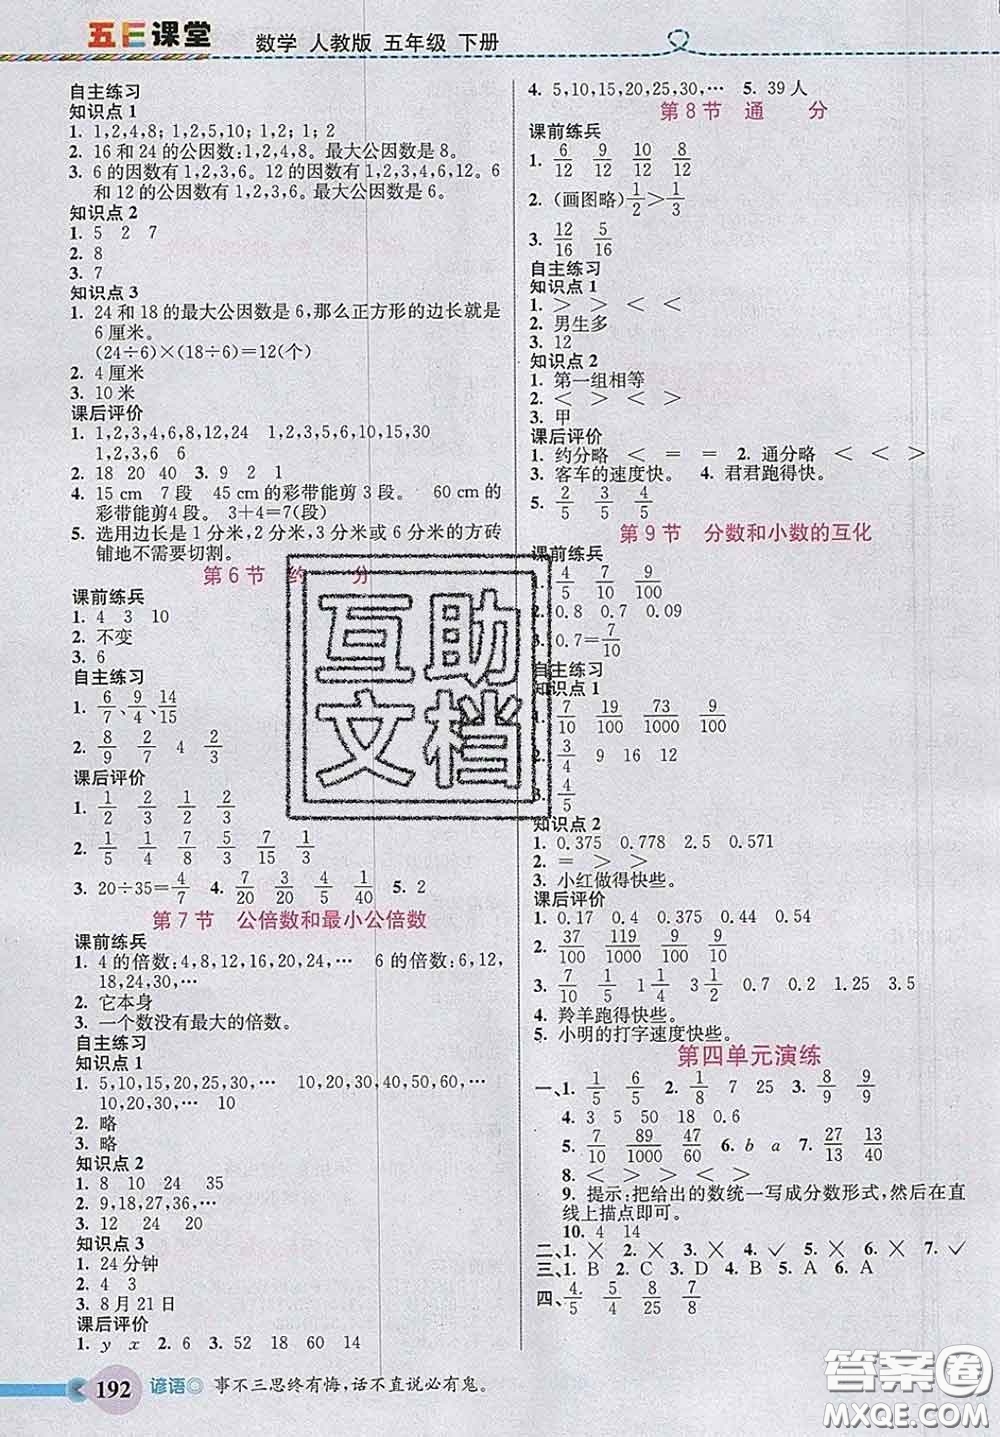 五E课堂 数学 人教版 五年级 下册
自主练习
知识点1
1. 1,2,4,8; 1,2,5,10; 1,2; 1; 2
2. 16和24的公因数:1,2,4,8。最大公因数是8。
3. 6的因数有1,2,3,6。12的因数有1,2,3,4,6,12。6
和12的公因数有1,2,3,6。最大公因数是6。
知识点2
1. 5 2 7
2. 8
3. 7
知识点3
1. 24和18的最大公因数是6,那么正方形的边长就是
6厘米。
(24÷6)×(18÷6)=12(个)
2. 4厘米
3. 10米
课后评价
1. 1,2,3,4,6,8,12,24 1,2,3,5,6,10,15,30
1,2,3,6 6
2. 18 20 40 3. 9 2 1
4. 15 cm 7段 45 cm的彩带能剪3段。 60 cm的
彩带能剪4段。 3+4=7(段)
5. 选用边长是1分米,2分米,3分米或6分米的方砖
铺地不需要切割。
第6节 约 分
课前练兵
1. 4 3 10
2. 不变
3. 6
自主练习
1. 6/7、9/4、14/15
2. 8/9 2/7 4 2/3
课后评价
1. 1/2 2/3 1/2 2/3
2. 1/5 1/4 7/8 5/7 3/15 7/3
3. 20÷35=4/7 4. 7/20 3/20 1/4 1/40 5. 2
第7节 公倍数和最小公倍数
课前练兵
1. 4的倍数:4,8,12,16,20,24,… 6的倍数:6,12,
18,24,30,…
2. 它本身
3. 一个数没有最大的倍数。
自主练习
知识点1
1. 5,10,15,20,25,30,… 10,20,30,40,50,60,…
10,20,30,… 10
2. 略
3. 略
知识点2
1. 8 10 24 35
2. 9,18,27,36,…
3. 12 24 20
知识点3
1. 24分钟
2. 4 3
3. 8月21日
课后评价
1. y x 2. 6 3. 52 18 60 14
4. 5,10,15,20,25,30,… 5. 39人
第8节 通 分
课前练兵
1. 6/12 9/12 10/12 8/12
2. (画图略) 1/2>1/3
3. 12/16 5/16
自主练习
知识点1
1. > > < <
2. 男生多
3. 12
知识点2
1. 第一组相等
2. < > < <
3. 甲
课后评价
1. 约分略 < = = 2. 通分略 < < <
3. 客车的速度快。 4. 君君跑得快。
5. 2/5 3/5 4/5
第9节 分数和小数的互化
课前练兵
1. 4/5 7/10 9/100
2. 0.8 0.7 0.09
3. 0.7=7/10
自主练习
知识点1
1. 7/10 19/100 73/1000 9/100
2. 3/4 9 16 12
3. 4/5
知识点2
1. 0.375 0.778 2.5 0.571
2. = > >
3. 小红做得快些。
课后评价
1. 0.17 0.4 0.375 0.44
2. 37/100 119/100 9/50 9/1000
3. 7/10 1/5 1 1/4 3 1/2 0.2 1.25 3.5
4. 羚羊跑得快些。
5. 小明的打字速度快些。
第四单元演练
一、1. 1/5 6/5 2. 1/8 7 25 3. 8/9 9/9
4. 3 5 50 18 0.6
5. 7/10 89/1000 47/60 6. b a 7. 27/13 13/40
8. < > > > <
9. 提示:把给出的数统一写成分数形式,然后在直
线上描点即可。
10. 4 14
二、1. × 2. × 3. × 4. ✓ 5. × 6. × 7. ✓
三、1. B 2. C 3. D 4. B 5. A 6. A
四、4/5 5/4 8/25 7/8
192 谚语 事不三思终有悔,话不直说必有鬼。
互助
文档
答案圈
MXQE.COM